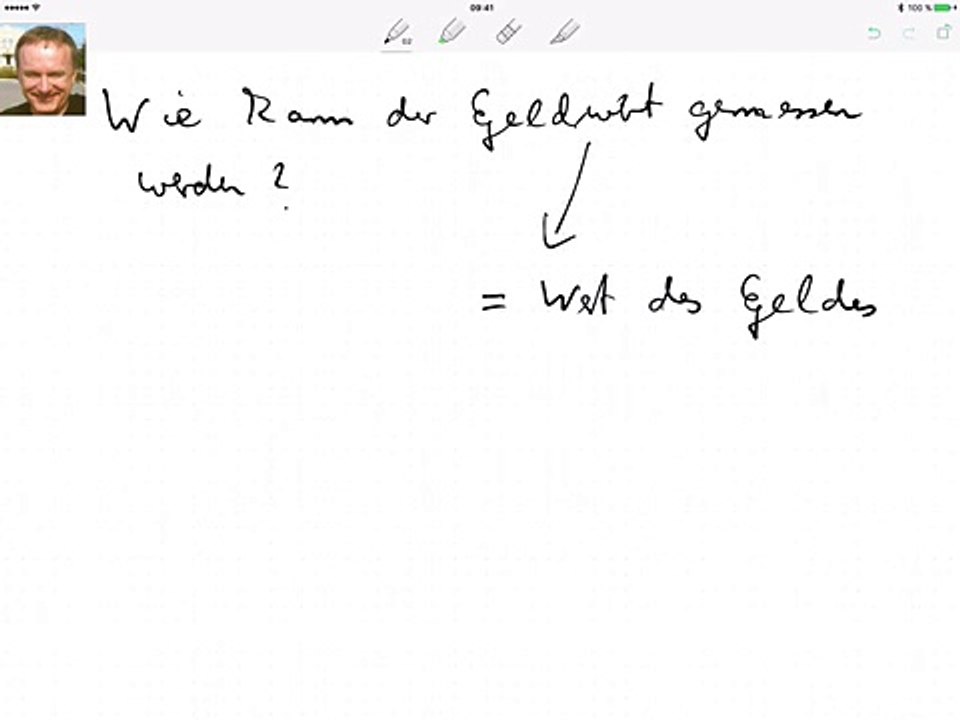 09:41
100 %
02
Wie kann der Geldwert gemessen
werden ?
= Wert des Geldes